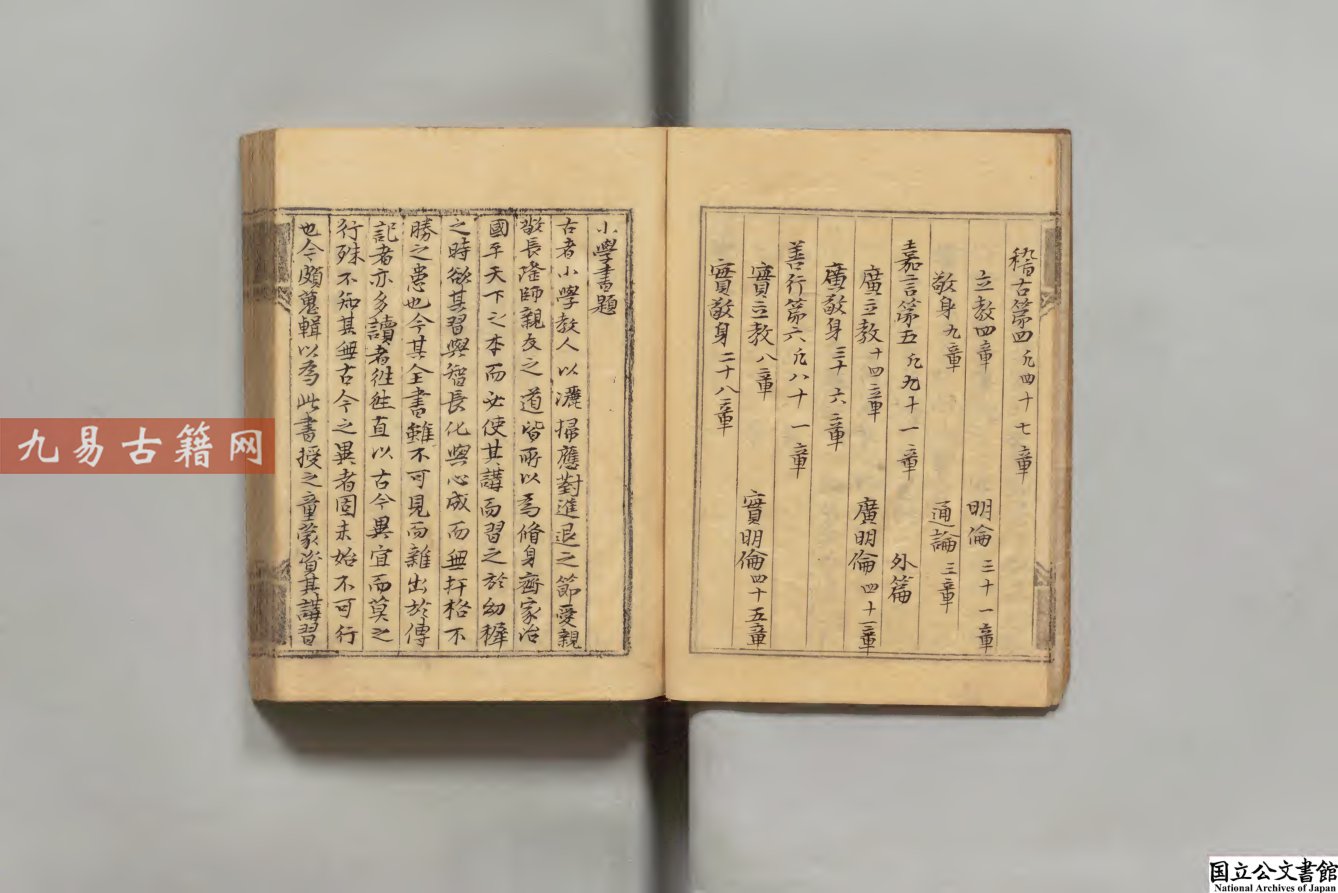 稽古第四凡四十七章
立教四章 明倫三十一章
敬身九章 通論三章
外篇
嘉言第五凡九十一章
廣立教十四章 廣明倫四十一章
廣敬身三十六章
善行第六凡八十一章
實立教八章 實明倫四十五章
實敬身二十八章
小學書題
古者小學教人以灑掃應對進退之節愛親
敬長隆師親友之道皆所以爲脩身齊家治
國平天下之本而必使其講而習之於幼穉
之時欲其習與智長化與心成而無扞格不
勝之患也今其全書雖不可見而雜出於傳
記者亦多讀者徃徃直以古今異宜而莫之
行殊不知其無古今之異者固未始不可行
也今頗蒐輯以爲此書授之童蒙資其講習
九易古籍网
国立公文書館
National Archives of Japan